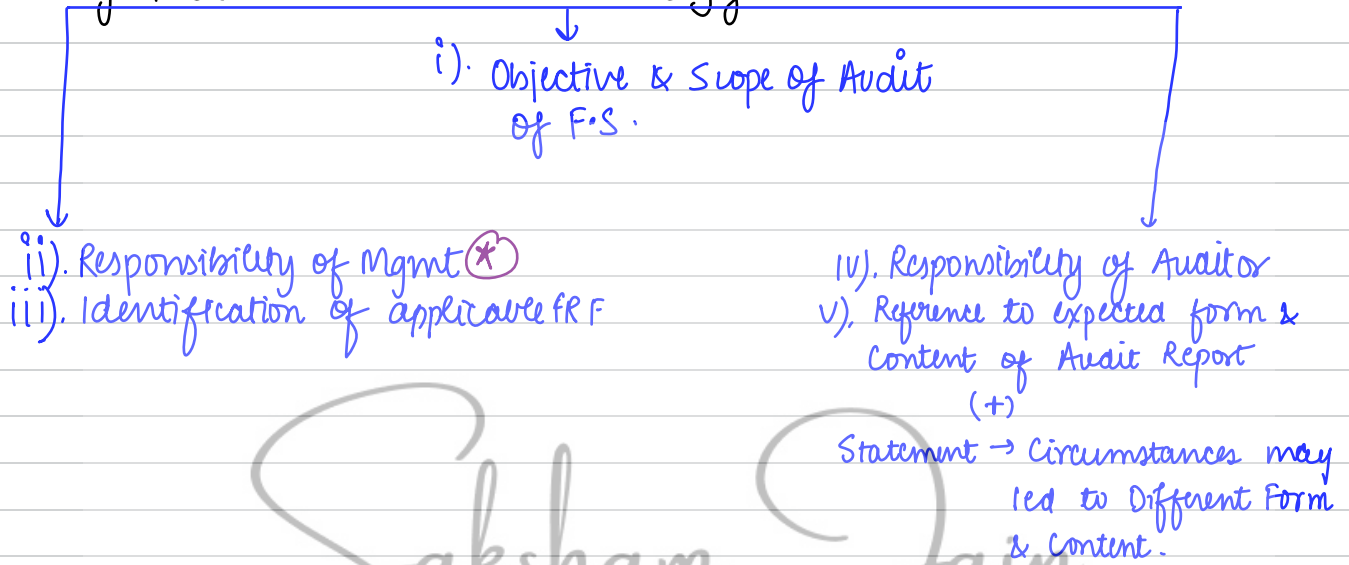 i). Objective & Scope of Audit
of F.S.
ii). Responsibility of Mgmt *
iii). Identification of applicable fRF
iv). Responsibility of Auditor
v). Reference to expected form &
Content of Audit Report
(+)
Statement → Circumstances may
led to Different Form
& Content.
Saksham Jain